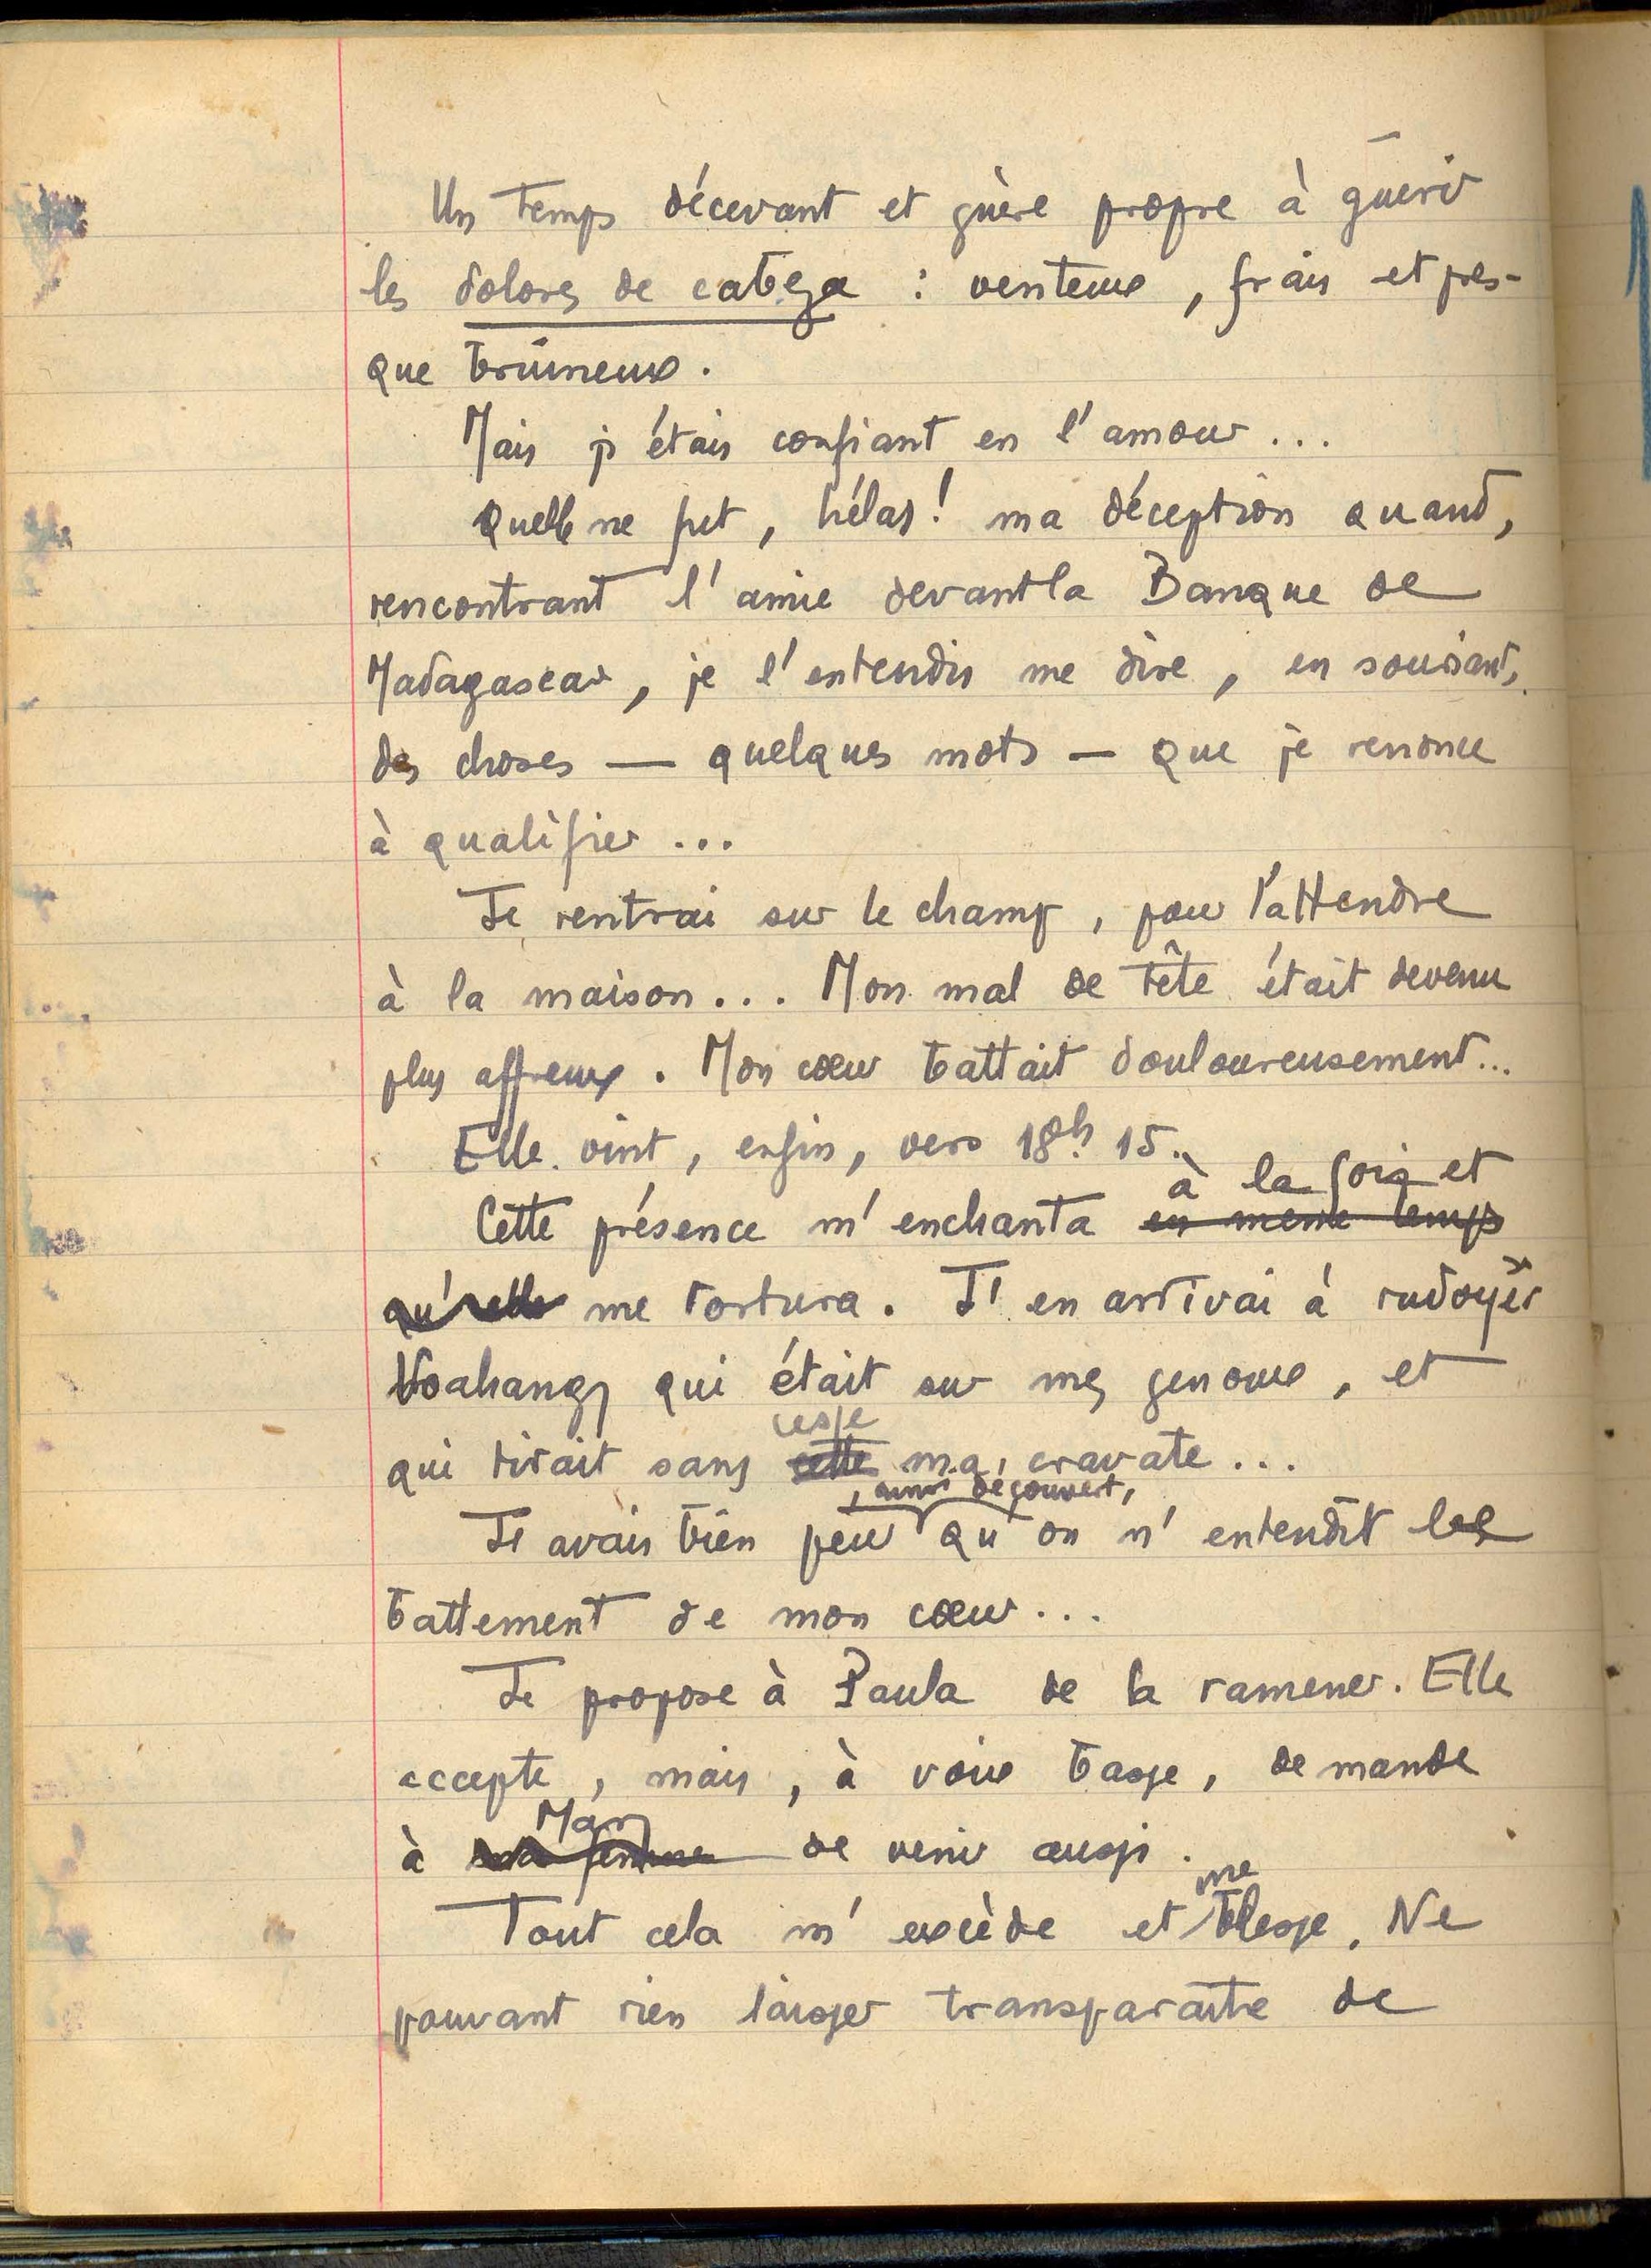 Un temps décevant et guère propre à guérir
les dolores de cabeza : venteux, frais et pres-
que brumeux.
Mais j'étais confiant en l'amour...
Quelle ne fut, hélas! ma déception quand,
rencontrant l'amie devant la Banque de
Madagascar, je l'entendis me dire, en souriant,
des choses — quelques mots — que je renonce
à qualifier...
Je rentrai sur le champ, pour l'attendre
à la maison... Mon mal de tête était devenu
plus affreux. Mon cœur battait douloureusement...
Elle vint, enfin, vers 18h 15.
à la fois et
Cette présence m'enchanta en même temps
qu'elle me tortura. J'en arrivai à rudoyer
Voahangy qui était sur mes genoux, et
cesse
qui tirait sans cette ma cravate...
, ainsi découvert,
J'avais bien peur qu'on n'entendît le
battement de mon cœur...
Je propose à Paula de la ramener. Elle
accepte, mais, à voix basse, demande
Mary
à ma femme de venir aussi.
me
Tout cela m'excède et blesse. Ne
pouvant rien laisser transparaître de